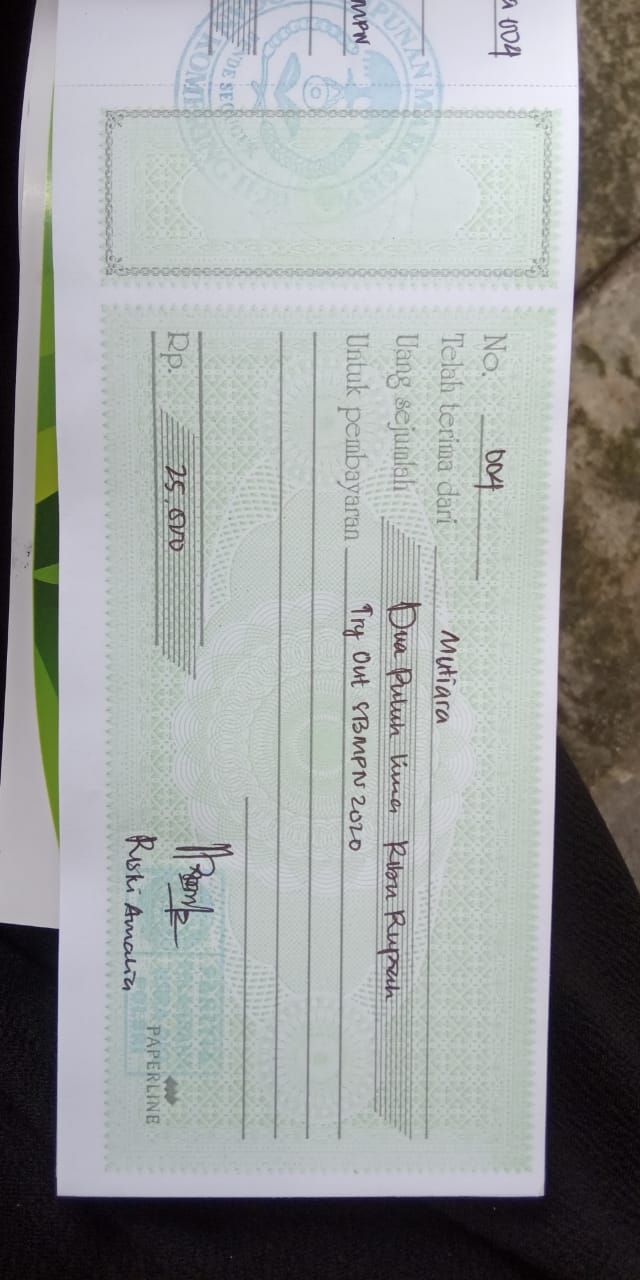 a 004
MPN
PUNAN MAHASISW
No. 004
Telah terima dari Mutiara
Uang sejumlah Dua Puluh Lima Ribu Rupiah
Untuk pembayaran Try Out SBMPN 2020
Rp. 25.000
Riski Amalia
PAPERLINE